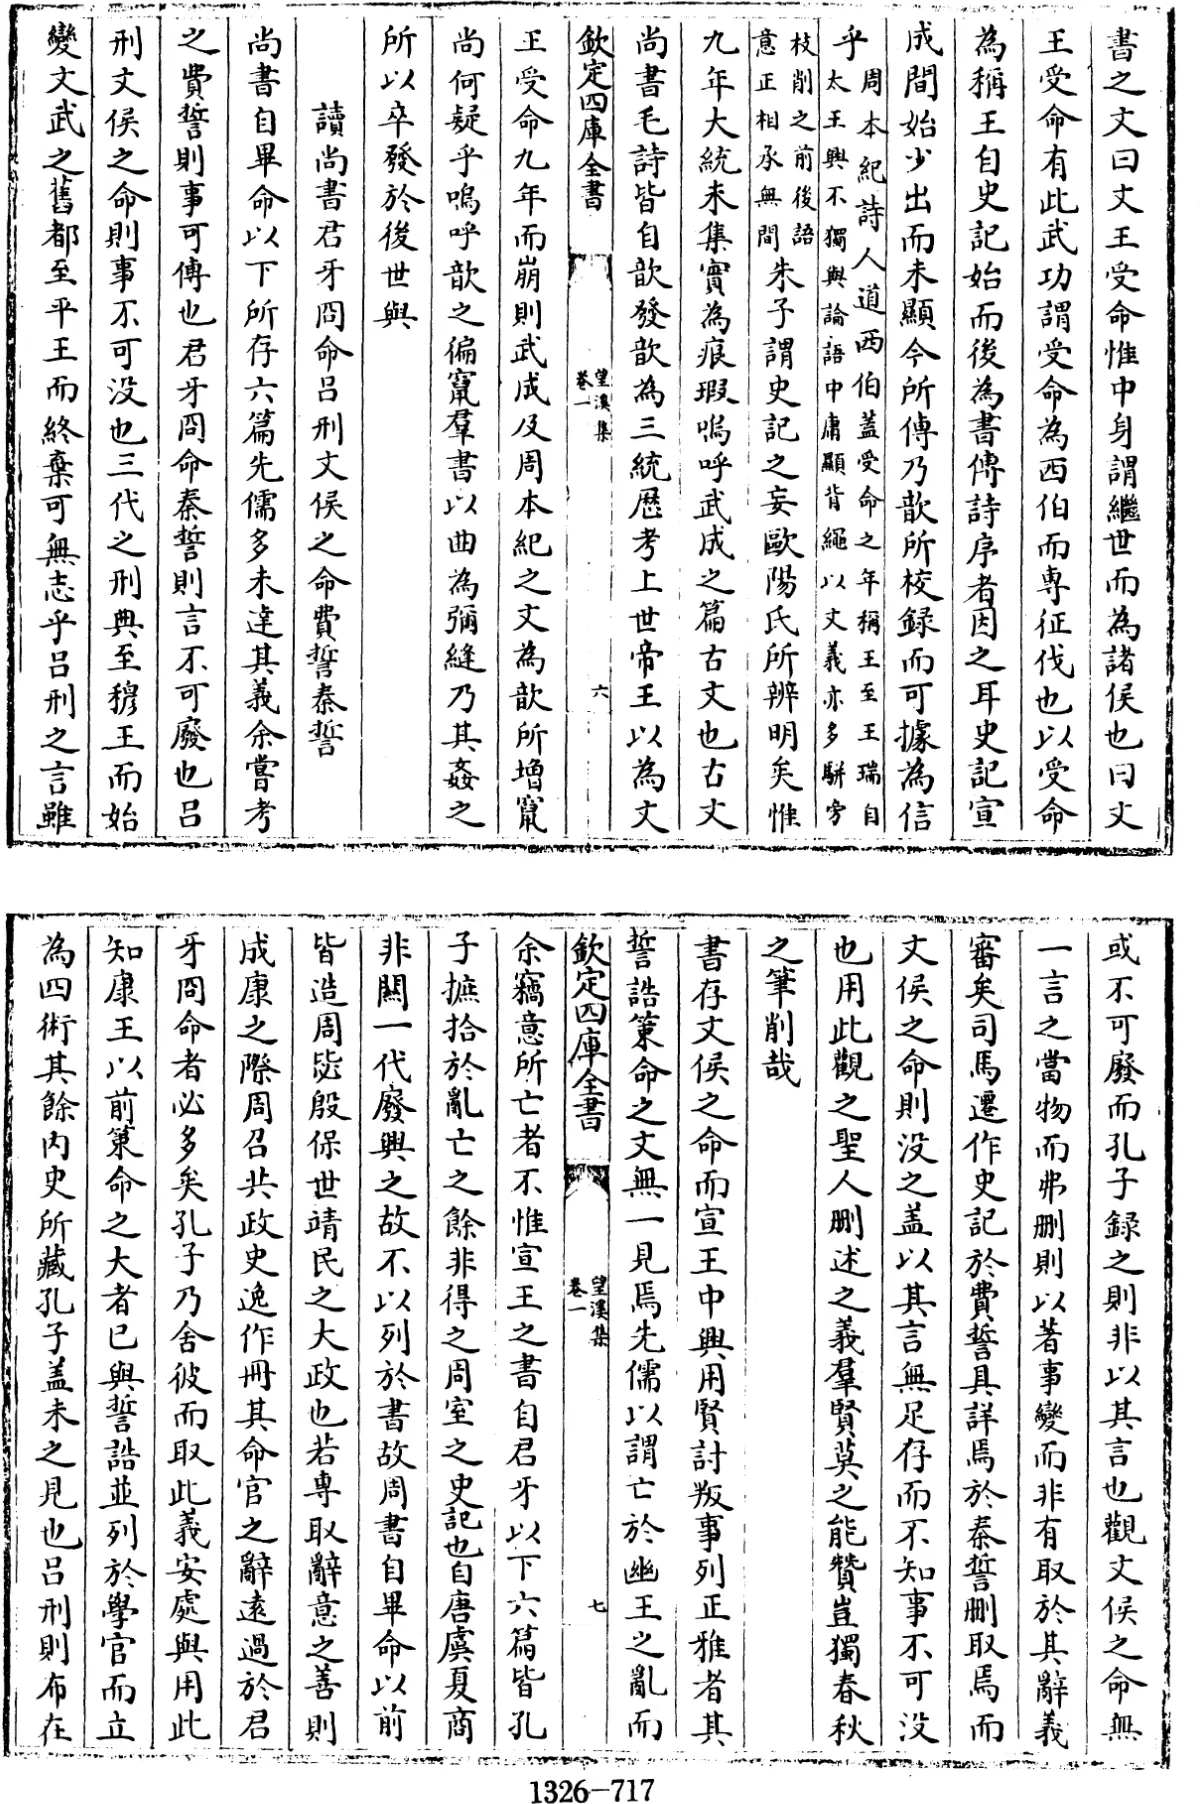 書之文曰文王受命惟中身謂繼世而為諸侯也曰文
王受命有此武功謂受命為西伯而專征伐也以受命
為稱王自史記始而後為書傳詩序者因之耳史記宣
成間始少出而未顯今所傳乃歆所校録而可據為信
乎
周本紀詩人道西伯蓋受命之年稱王至王瑞自
太王興不獨與論語中庸顯背繩以文義亦多駢旁
枝削之前後語
意正相承無間
朱子謂史記之妄歐陽氏所辨明矣惟
九年大統未集實為痕瑕嗚呼武成之篇古文也古文
尚書毛詩皆自歆發歆為三統歴考上世帝王以為文
欽定四庫全書
望溪集
卷一
六
王受命九年而崩則武成及周本紀之文為歆所增竄
尚何疑乎嗚呼歆之徧竄羣書以曲為彌縫乃其姦之
所以卒發於後世與
讀尚書君牙冏命呂刑文侯之命費誓秦誓
尚書自畢命以下所存六篇先儒多未達其義余嘗考
之費誓則事可傳也君牙冏命秦誓則言不可廢也呂
刑文侯之命則事不可没也三代之刑典至穆王而始
變文武之舊都至平王而終棄可無志乎呂刑之言雖
或不可廢而孔子録之則非以其言也觀文侯之命無
一言之當物而弗刪則以著事變而非有取於其辭義
審矣司馬遷作史記於費誓具詳焉於秦誓刪取焉而
文侯之命則没之蓋以其言無足存而不知事不可没
也用此觀之聖人刪述之義羣賢莫之能贊豈獨春秋
之筆削哉
書存文侯之命而宣王中興用賢討叛事列正雅者其
誓誥策命之文無一見焉先儒以謂亡於幽王之亂而
欽定四庫全書
望溪集
卷一
七
余竊意所亡者不惟宣王之書自君牙以下六篇皆孔
子摭拾於亂亡之餘非得之周室之史記也自唐虞夏商
非關一代廢興之故不以列於書故周書自畢命以前
皆造周毖殷保世靖民之大政也若專取辭意之善則
成康之際周召共政史逸作冊其命官之辭遠過於君
牙冏命者必多矣孔子乃舍彼而取此義安處與用此
知康王以前策命之大者已與誓誥並列於學官而立
為四術其餘内史所藏孔子蓋未之見也呂刑則布在
1326-717